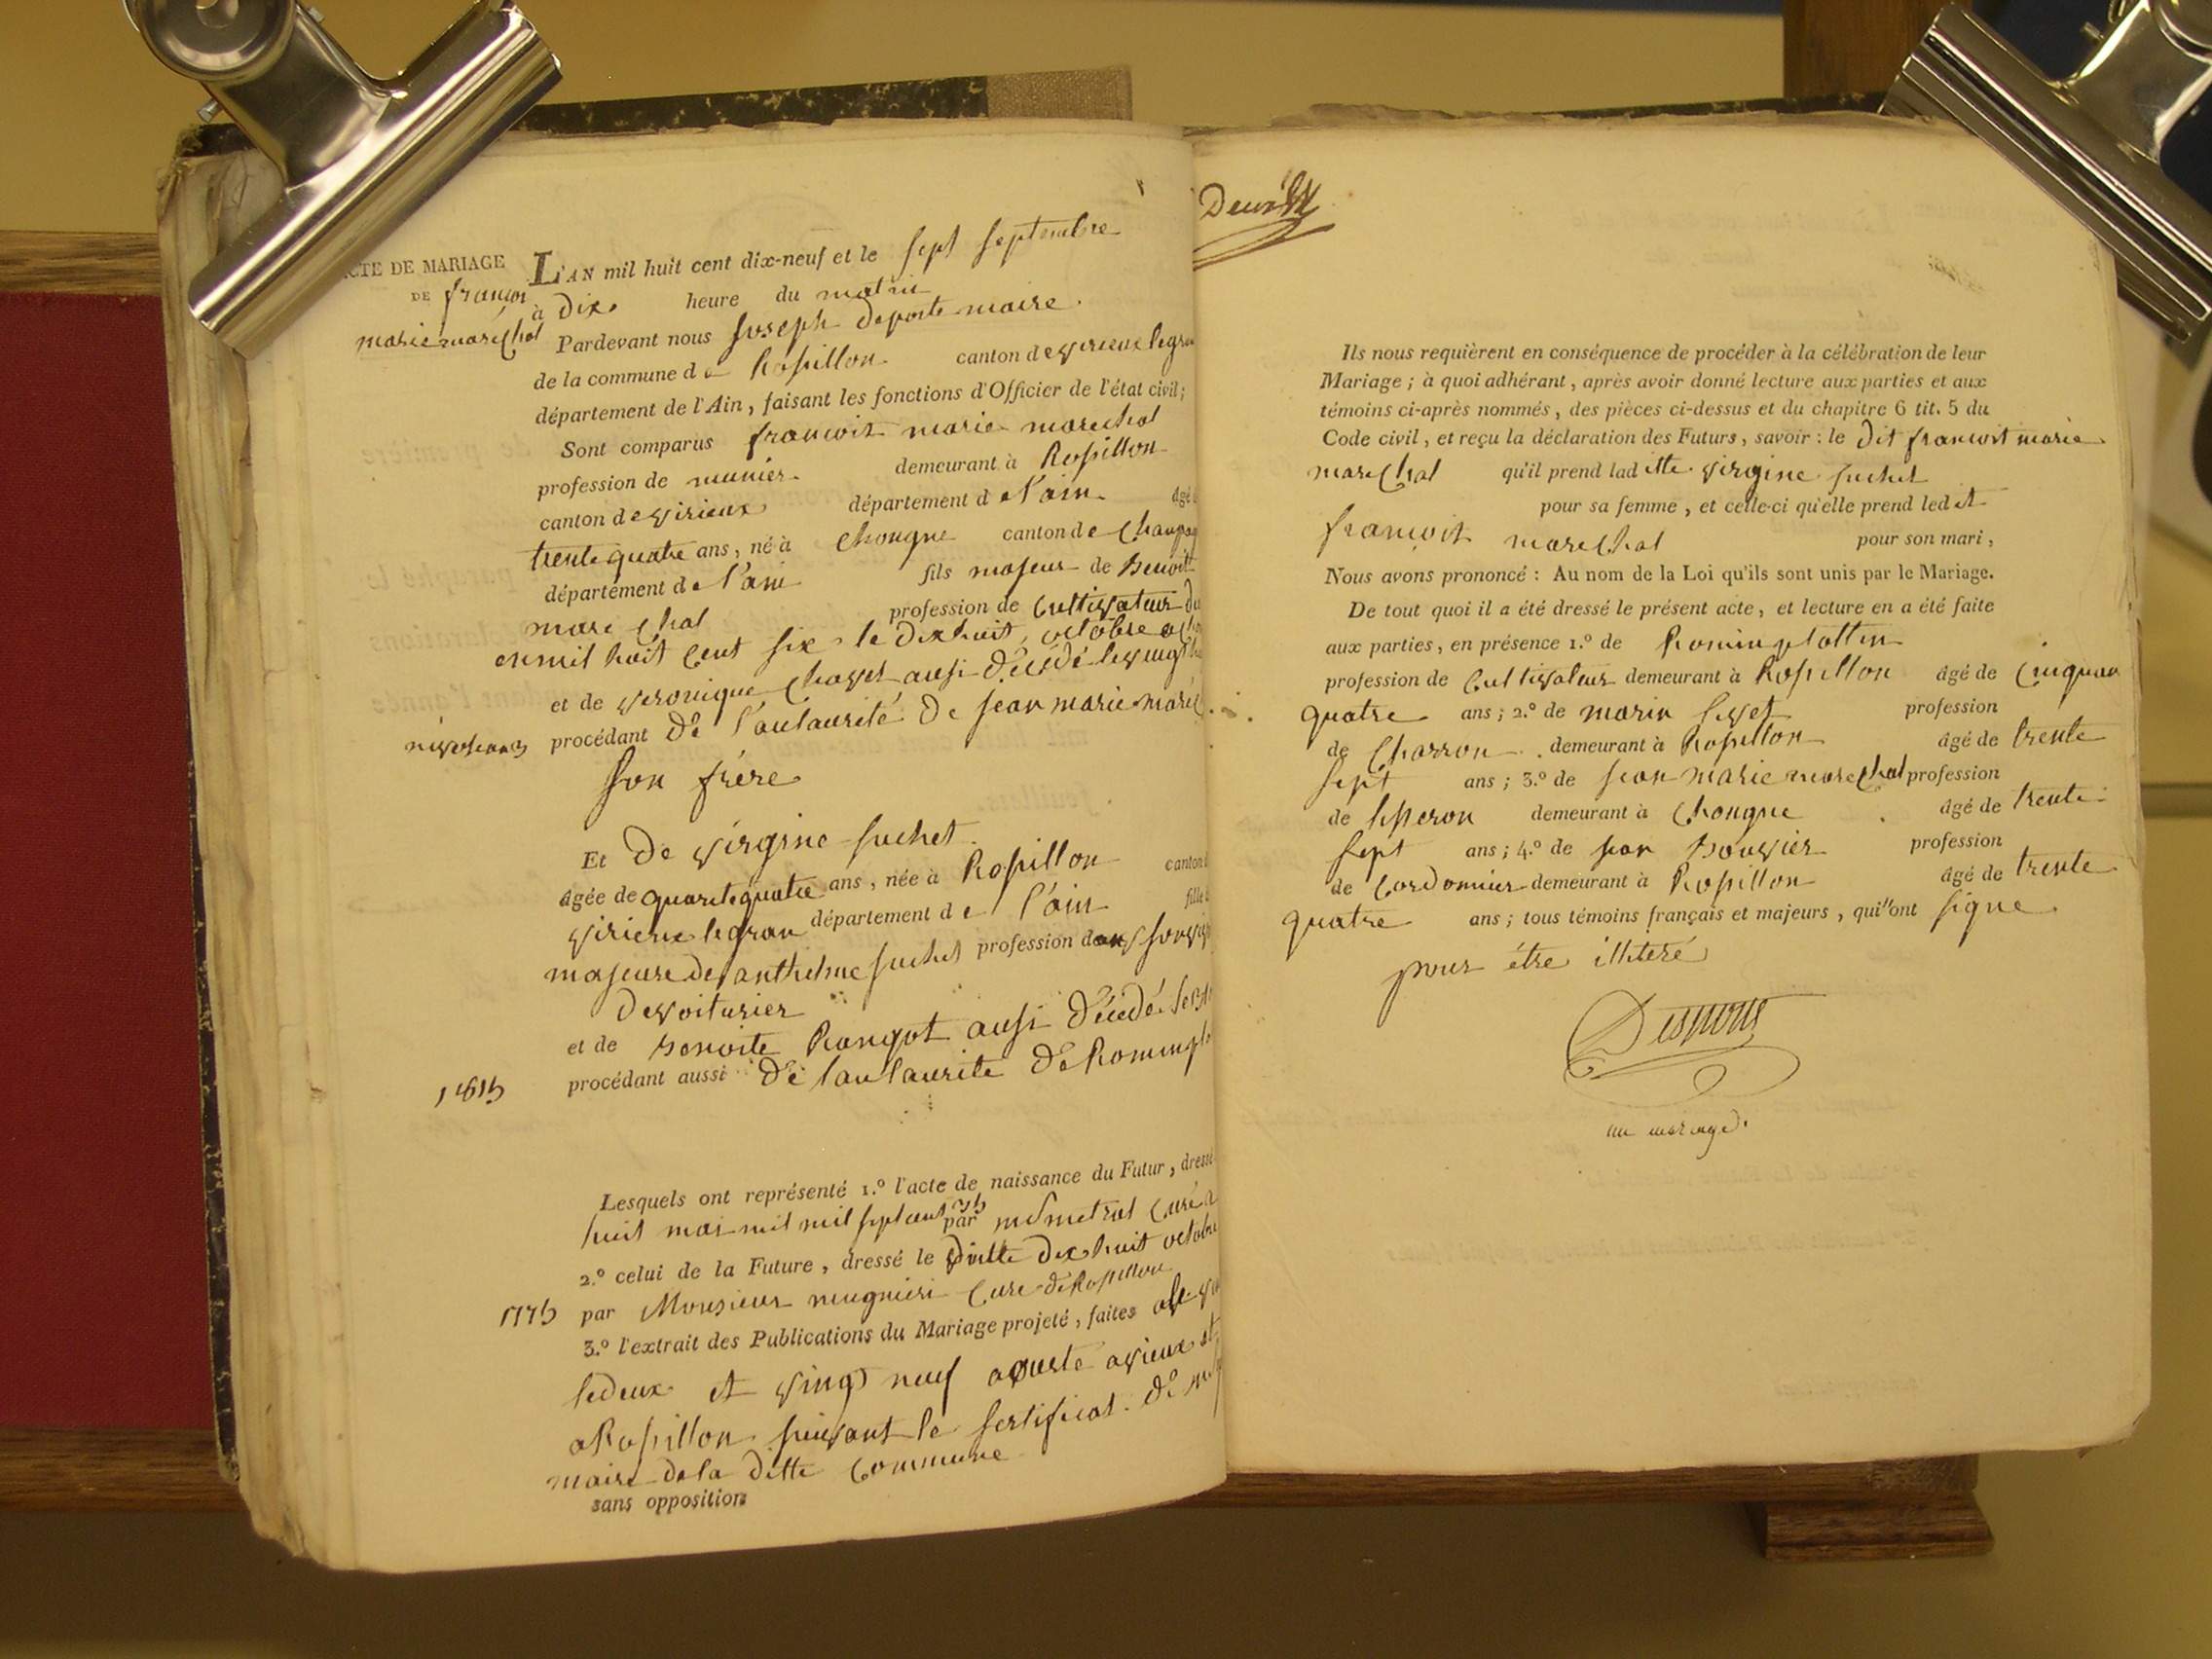 ACTE DE MARIAGE
DE françois
marie marechal
L'AN mil huit cent dix-neuf et le sept septembre
à dix heure du matin
Pardevant nous joseph deporte maire
de la commune de Rossillon canton de virieux legran
département de l'Ain, faisant les fonctions d'Officier de l'état civil;
Sont comparus francois marie marechal
profession de munier demeurant à Rossillon
canton de virieux département de l'ain âgé
trente quatre ans, né à Chongne canton de Champag
département de l'ain fils majeur de Benoit
marechal profession de Cultivateur
en mil huit cent six le dixhuit octobre
et de veronique Chavet aussi décédé le vingt
nivose an 13 procédant de l'autaurité de jean marie maréc
son frère
Et de virgine suchet
âgée de quarte quatre ans, née à Rossillon canton
virieux legran département de l'ain fille
majeure de anthelme suchet profession
de voiturier
et de benoite Rangot aussi décédé
1815 procédant aussi de l'autaurité de Romin
Lesquels ont représenté 1.º l'acte de naissance du Futur, dressé
huit mai mil mil sept cent par Curé
2.º celui de la Future, dressé le dix huit octobre
1775 par Monsieur mugnier Curé de Rossillon
3.º l'extrait des Publications du Mariage projeté, faites
le deux et vingt neuf aouste a vieux et
a Rossillon suivant le sertificat de
maire de la ditte Commune
sans opposition
Ils nous requièrent en conséquence de procéder à la célébration de leur
Mariage; à quoi adhérant, après avoir donné lecture aux parties et aux
témoins ci-après nommés, des pièces ci-dessus et du chapitre 6 tit. 5 du
Code civil, et reçu la déclaration des Futurs, savoir: le dit francoit marie
marechal qu'il prend laditte virgine suchet
pour sa femme, et celle-ci qu'elle prend ledit
françoit marechal pour son mari,
Nous avons prononcé: Au nom de la Loi qu'ils sont unis par le Mariage.
De tout quoi il a été dressé le présent acte, et lecture en a été faite
aux parties, en présence 1.º de Romin
profession de Cultivateur demeurant à Rossillon âgé de Cinquan
quatre ans; 2.º de marin profession
de Charron demeurant à Rossillon âgé de trente
sept ans; 3.º de jean marie marechal profession
de demeurant à Chongne âgé de trente
sept ans; 4.º de jean Bouvier profession
de Cordonnier demeurant à Rossillon âgé de trente
quatre ans; tous témoins français et majeurs, qui ont signe
pour être illiteré
un mariage.